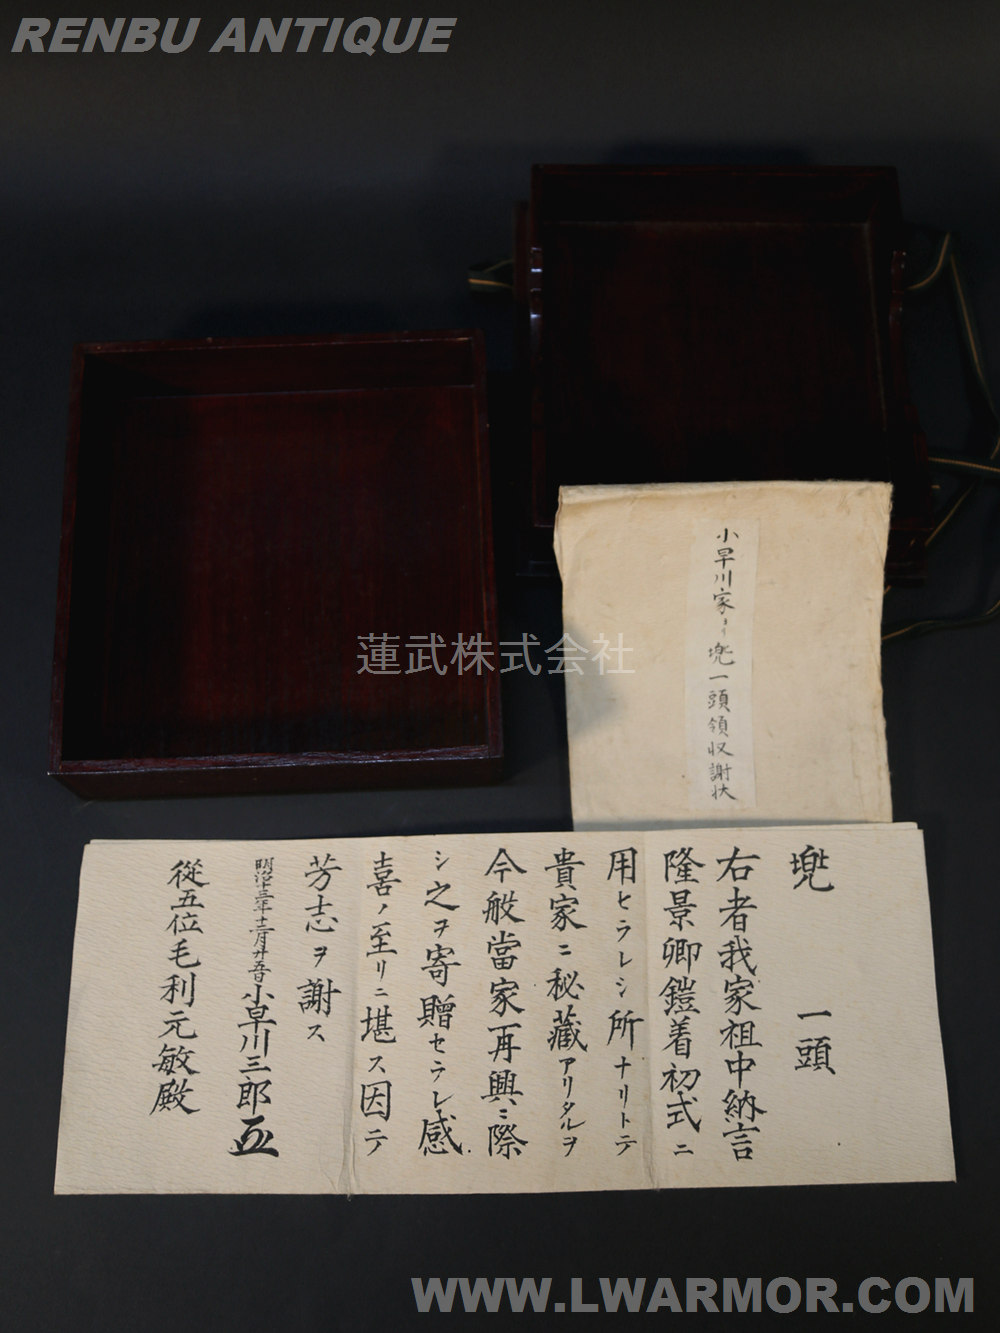 RENBU ANTIQUE
小早川家ヨリ兜一頭領収謝状
蓮武株式会社
兜 一頭
右者我家祖中納言
隆景卿鎧着初式ニ
用ヒラレシ所ナリトテ
貴家ニ秘藏アリタルヲ
今般當家再興ニ際
シ之ヲ寄贈セラレ感
喜ノ至リニ堪ス因テ
芳志ヲ謝ス
明治十三年十二月廿五日小早川三郎
從五位毛利元敏殿
WWW.LWARMOR.COM